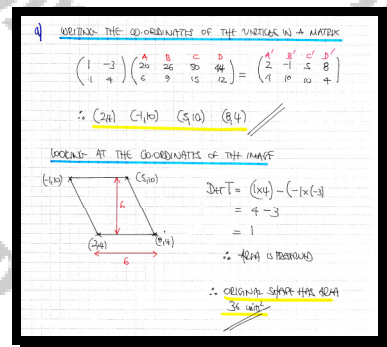 a) WRITING THE CO-ORDINATES OF THE VERTICES IN A MATRIX
A B C D A' B' C' D'
(1 -3) (20 26 50 44) = (2 -1 5 8)
(-1 4) (6 9 15 12) (4 10 10 4)
∴ (2,4) (-1,10) (5,10) (8,4)
LOOKING AT THE CO-ORDINATES OF THE IMAGE
(-1,10) (5,10)
6
(2,4) (8,4)
6
DET T = (1x4) - (-1x(-3)
= 4 - 3
= 1
∴ AREA IS PRESERVED
∴ ORIGINAL SHAPE HAS AREA
36 unit²